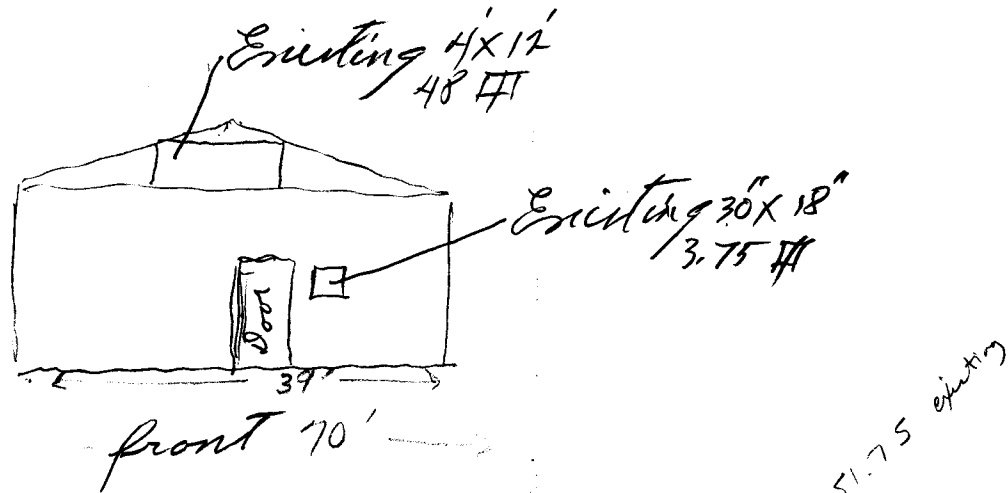 Existing 4'x12'
48 #
Existing 30"x18"
3.75 #
Door
39'
front 70'
51.75 existing